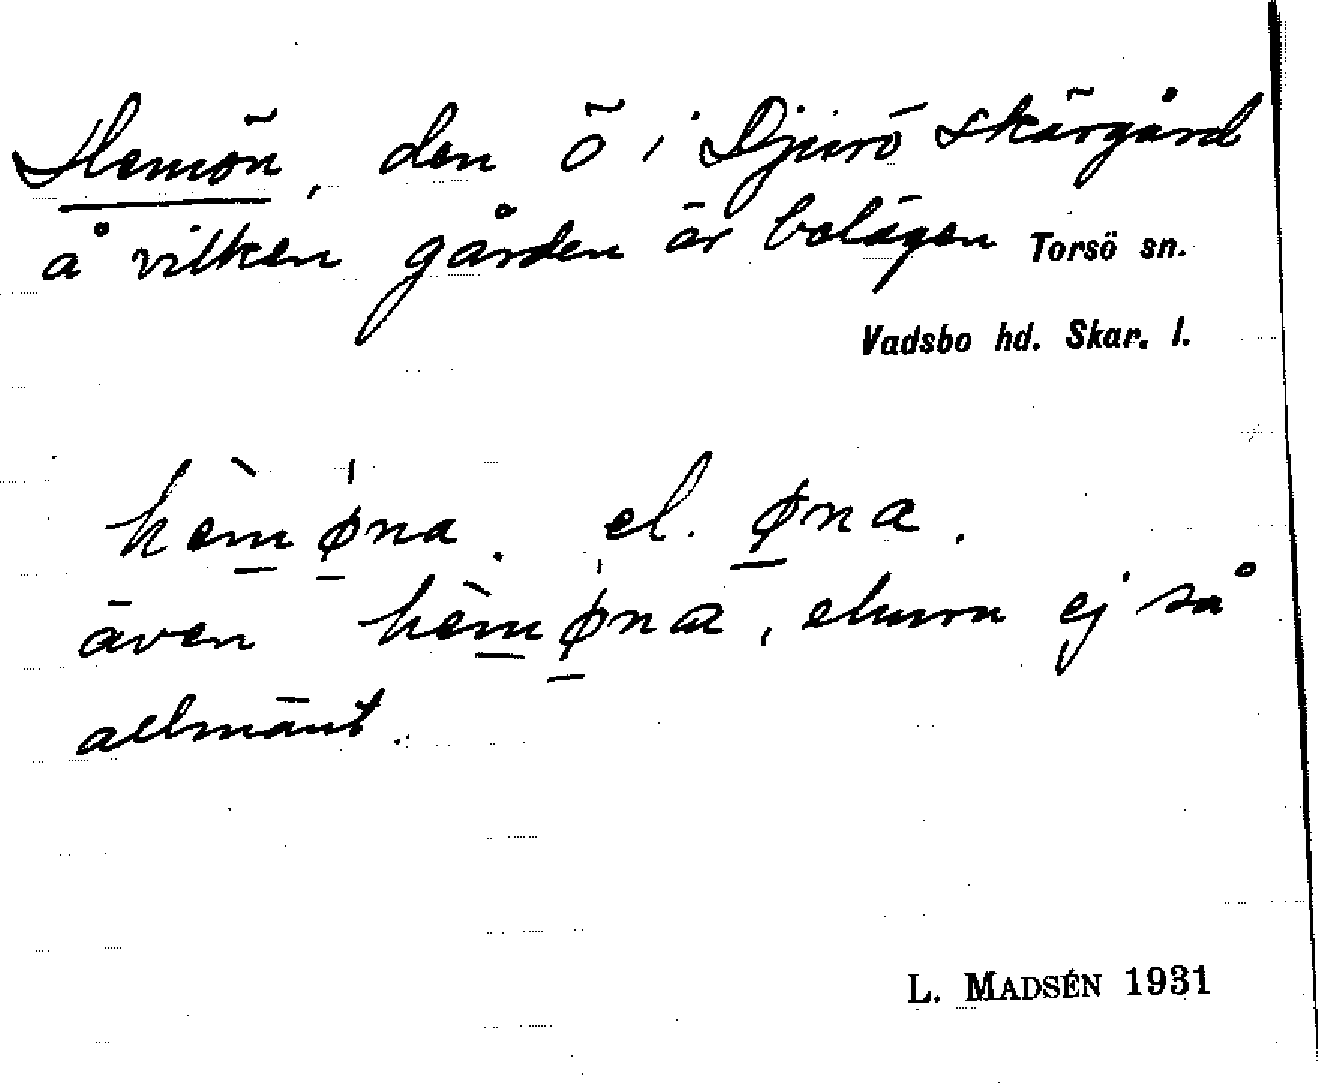 Hemön, den ö i Djurö skärgård
å vilken gården är belägen Torsö sn.
Vadsbo hd. Skar. l.
hèmø̍na. el. øna.
även hèmø̍na, ehuru ej så
allmänt.
L. MADSÉN 1931